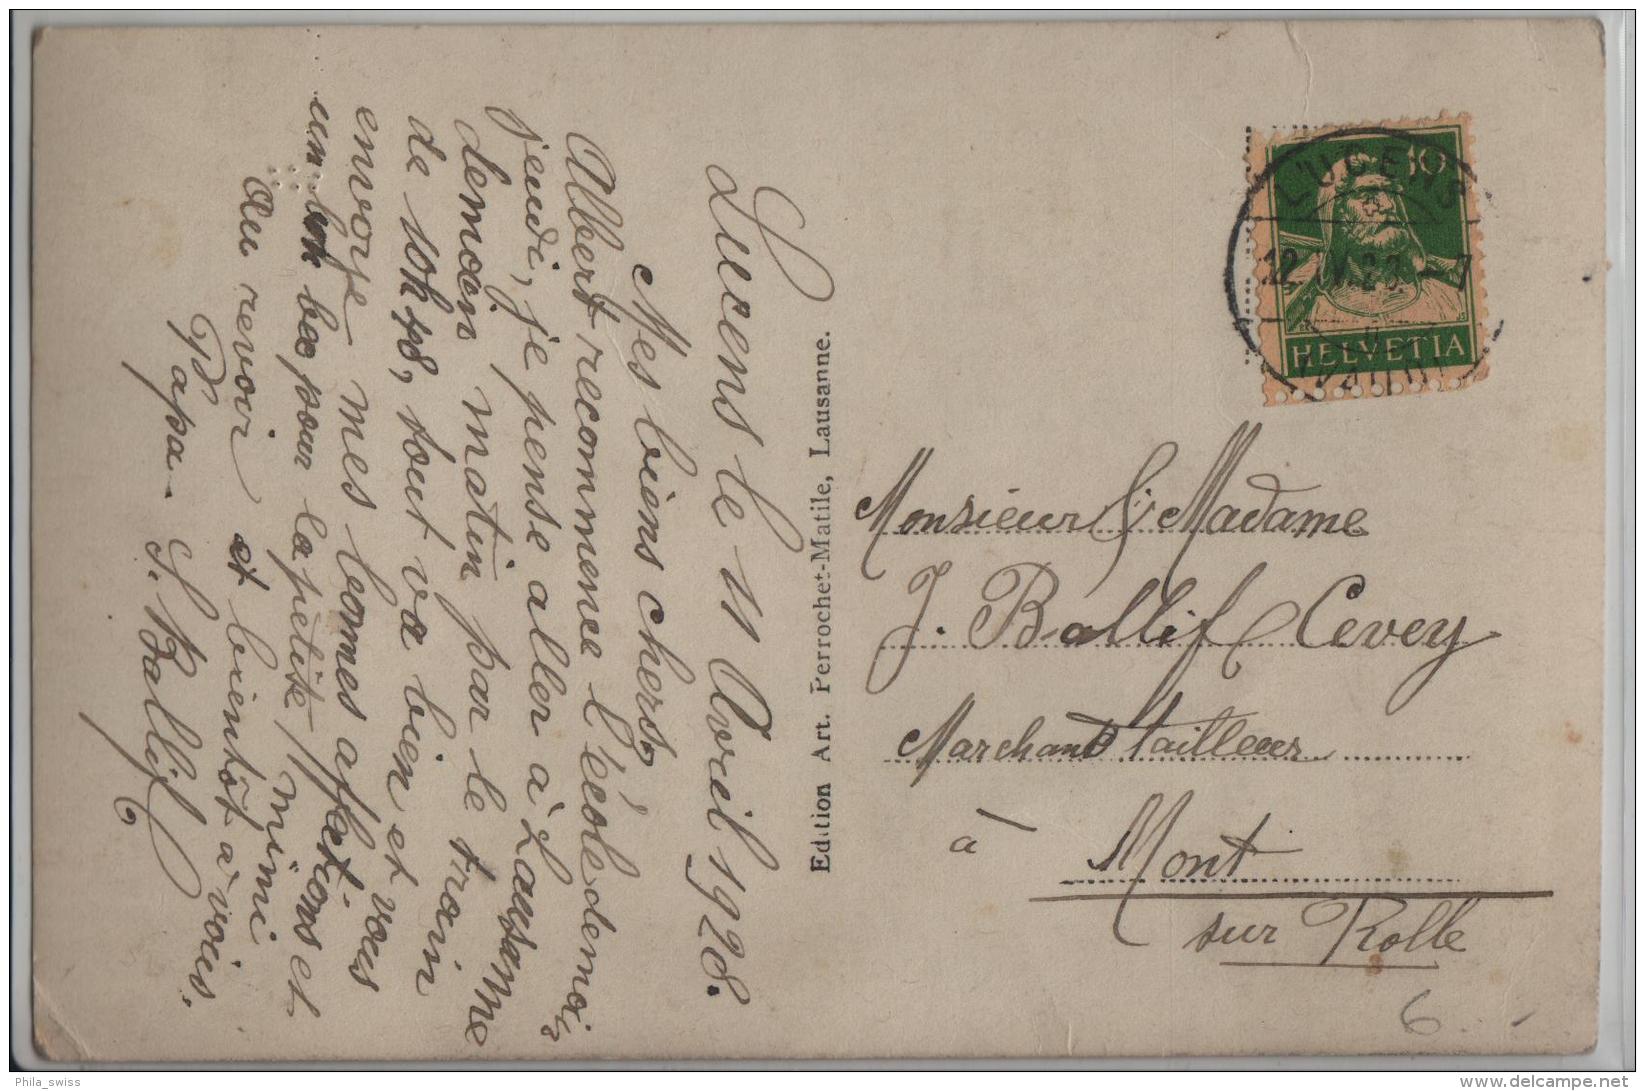 Lucens le 11 Avril 1928.
Mes biens chers,
Albert recommence l'école demain
jeudi, je pense aller à Lausanne
demain matin par le train
de 10h48, tout va bien et vous
envoye mes bonnes affections et
un bec pour la petite mimi
Au revoir et bientôt à vous.
Papa J. Ballif
Edition Art. Perrochet-Matile, Lausanne.
LUCENS
12. IV. 28. -7
(VAUD)
10
HELVETIA
Monsieur & Madame
J. Ballif Cevey
Marchand tailleur
à Mont
sur Rolle
6
Phila_swiss
delcampe.net